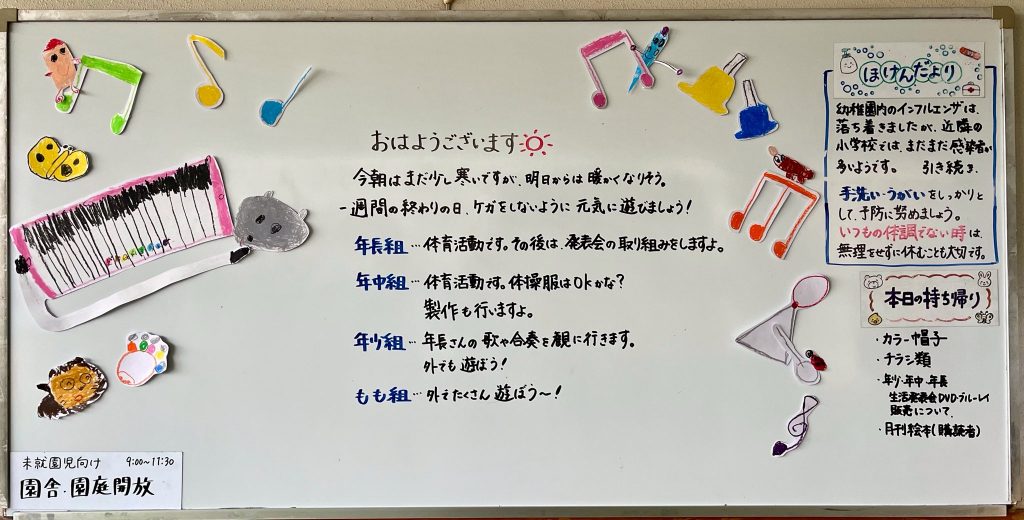 おはようございます
今朝はまだ少し寒いですが、明日からは暖かくなりそう。
一週間の終わりの日、ケガをしないように元気に遊びましょう！
年長組…体育活動です。その後は、発表会の取り組みをしますよ。
年中組…体育活動です。体操服はOKかな？
製作も行いますよ。
年少組…年長さんの歌や合奏を観に行きます。
外でも遊ぼう！
もも組…外でたくさん遊ぼう〜！
未就園児向け 9:00〜11:30
園舎・園庭開放
ほけんだより
幼稚園内のインフルエンザは、
落ち着きましたが、近隣の
小学校では、まだまだ感染者が
多いようです。 引き続き、
手洗い・うがいをしっかりと
して、予防に努めましょう。
いつもの体調でない時は、
無理をせずに休むことも大切です。
本日の持ち帰り
・カラー帽子
・チラシ類
・年少・年中・年長
生活発表会DVD・ブルーレイ
販売について
・月刊絵本(購読者)